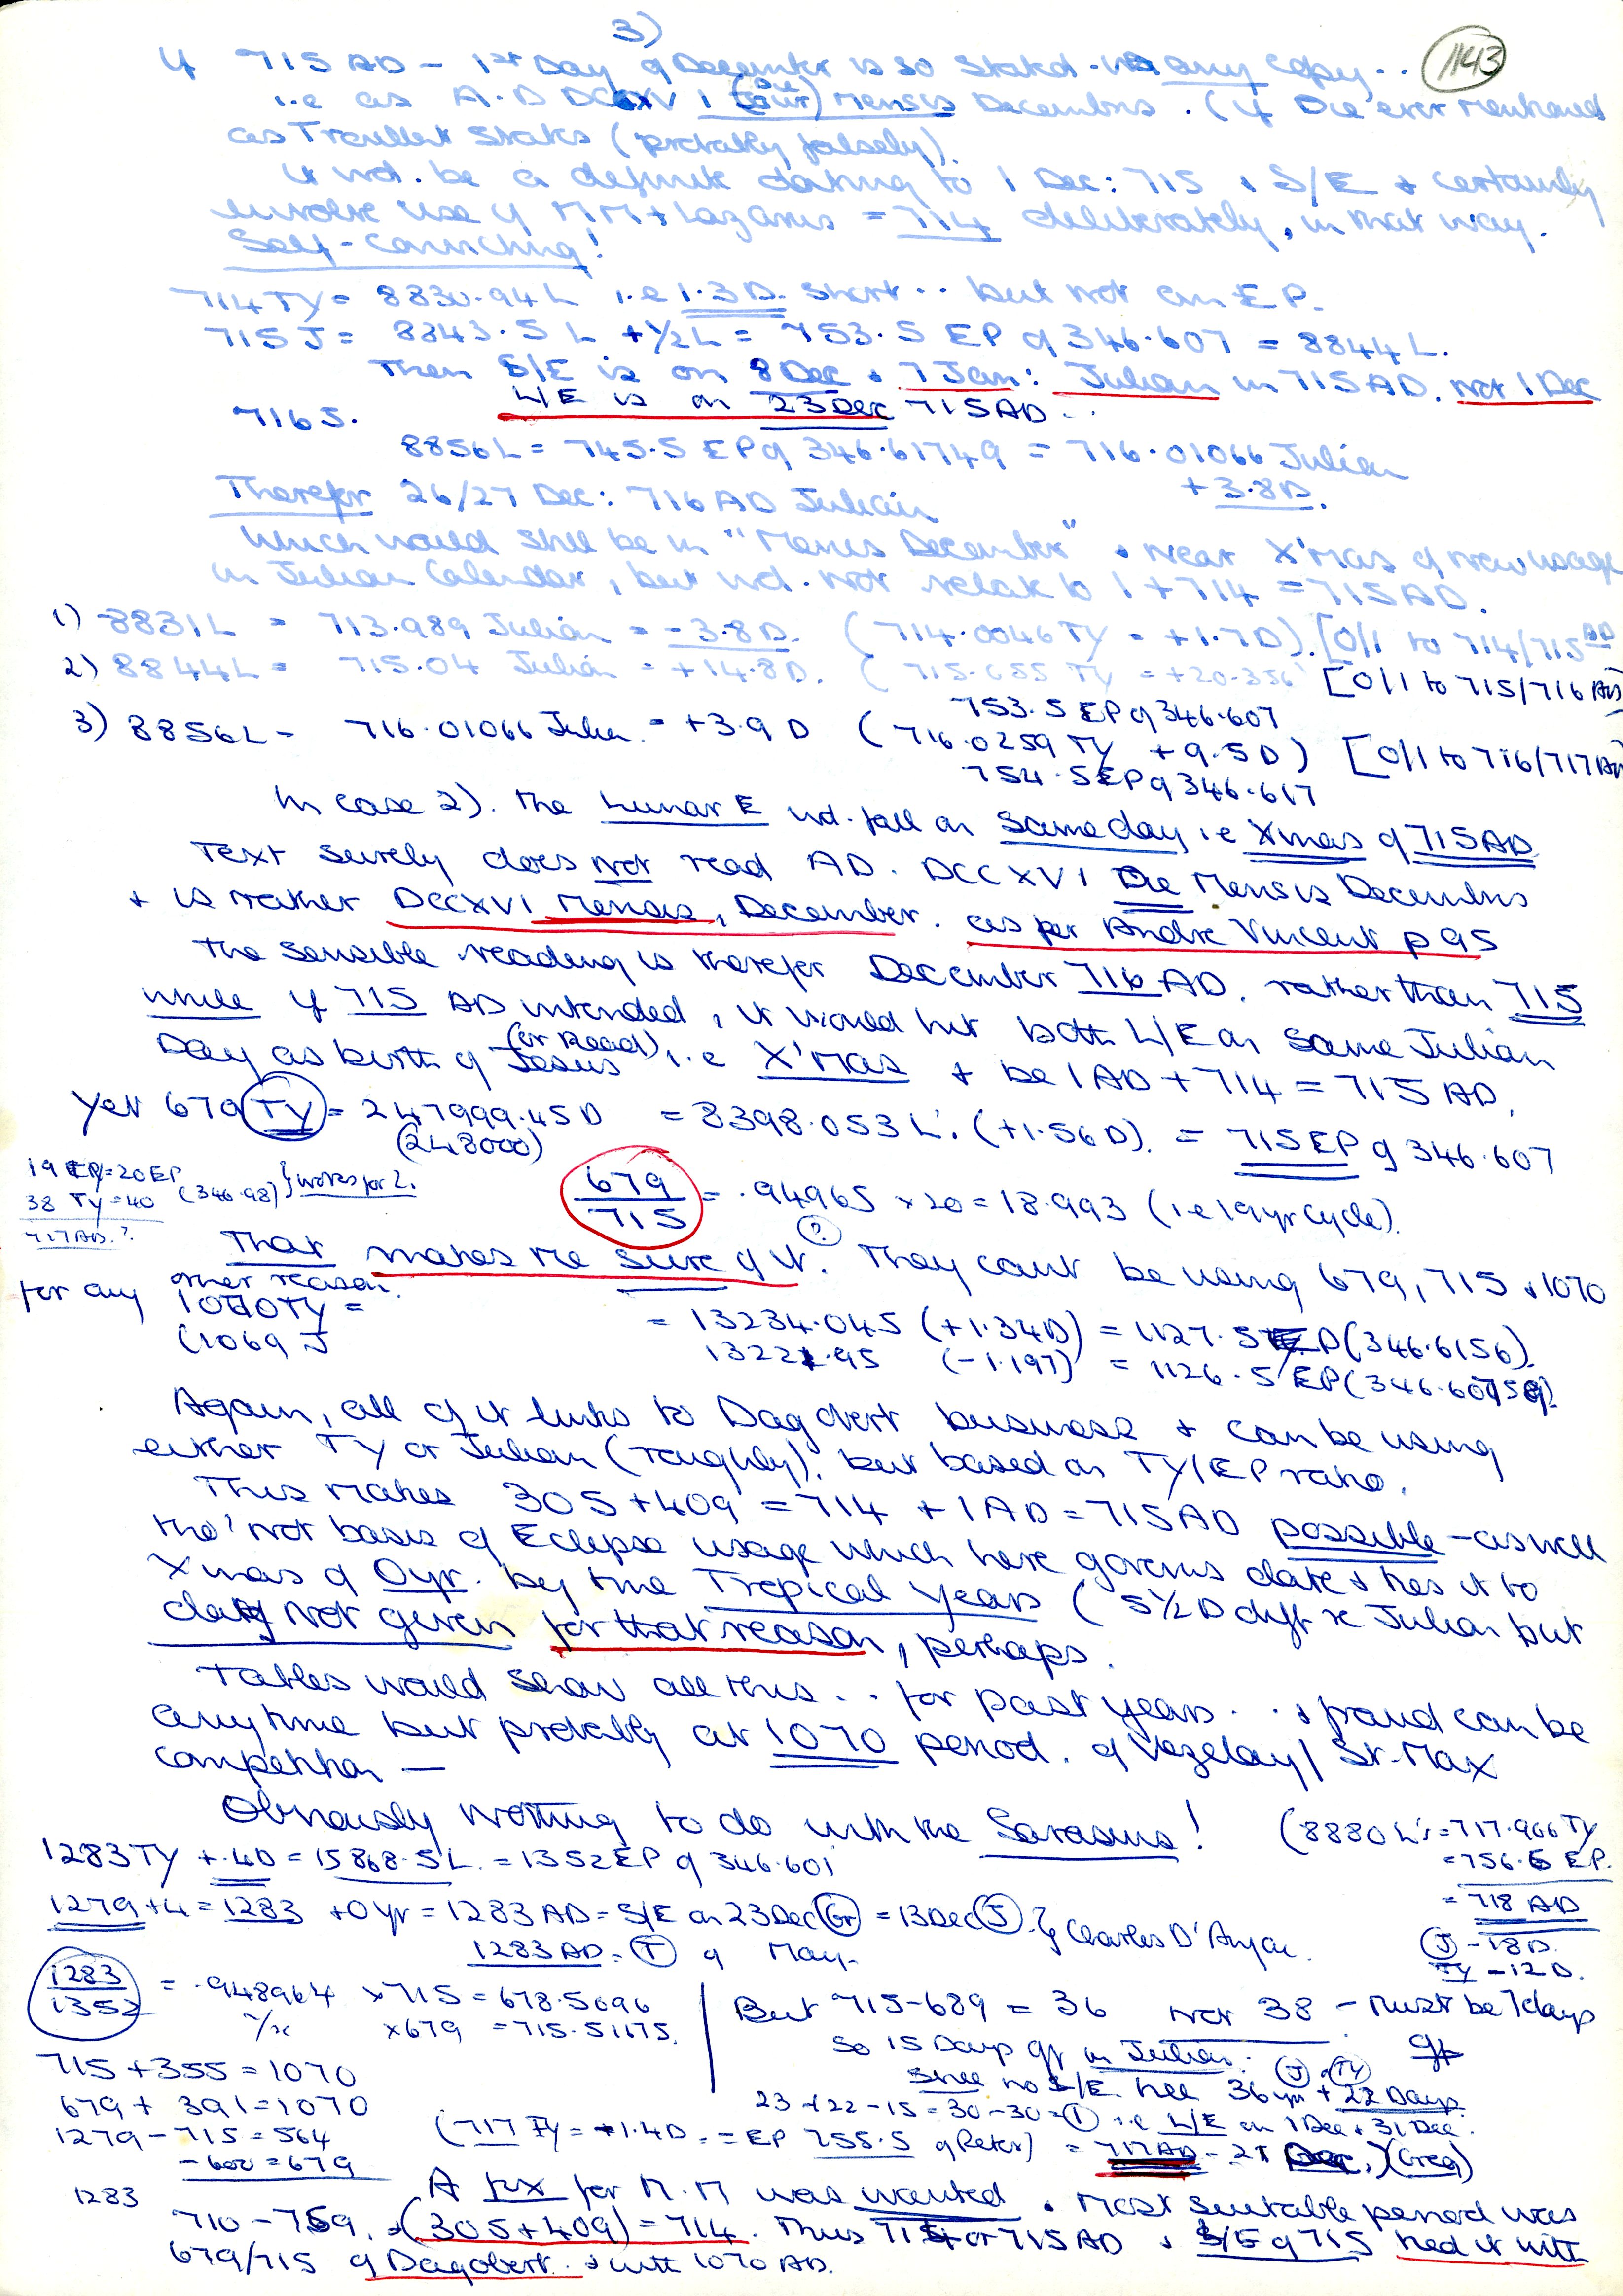 3)
1143
If 715 AD - 1st Day of December is so stated in any copy..
i.e as A.D DCCXV 1 (die) Mensis Decembris. (if Die ever mentioned
as Troullet states (probably falsely).
It wd. be a definite dating to 1 Dec: 715 & S/E & certainly
involve use of MM + Lazarus = 714 deliberately, in that way.
Self-convincing!
714 TY = 8830.94 L i.e 1.3 D. short.. but not an EP.
715 J = 8843.5 L + 1/2 L = 753.5 EP of 346.607 = 8844 L.
Then S/E is on 8 Dec & 7 Jan: Julian in 715 AD. not 1 Dec
L/E is on 23 Dec 715 AD..
716 J.
8856 L = 745.5 EP of 346.61749 = 716.01066 Julian
+ 3.8 D.
Therefor 26/27 Dec: 716 AD Julian
which would still be in "Mensis December" & near X'mas of new usage
in Julian Calendar, but wd. not relate to 1 + 714 = 715 AD.
1) 8831 L = 713.989 Julian = -3.8 D. (714.0046 TY = +1.7 D). [0/1 to 714/715 AD
2) 8844 L = 715.04 Julian = +14.8 D. (715.055 TY = +20.356 [0/1 to 715/716 AD]
753.5 EP of 346.607
3) 8856 L - 716.01066 Julian = +3.9 D (716.0259 TY + 9.5 D) [0/1 to 716/717 AD]
754.5 EP of 346.617
In case 2). the Lunar E wd. fall on same day, i.e Xmas of 715 AD
Text surely does not read AD. DCCXVI Die Mensis Decembris
+ is rather DCCXVI Mensis, December. as per Andre Vincent p 95
The sensible reading is therefor December 716 AD. rather than 715
while if 715 AD intended, it would hit both L/E on same Julian
Day as birth of Jesus (or Read), i.e X'mas + be 1 AD + 714 = 715 AD.
Yet 679 TY = 247999.45 D = 8398.053 L. (+1.56 D). = 715 EP of 346.607
(248000)
19 EP = 20 EP (346.98) } works for 2.
38 TY = 40
717 AD.?
679/715 = .94965 x 20 = 18.993 (i.e 19 yr cycle).
That makes me sure of it. (?) They can't be using 679, 715 & 1070
for any other reason.
1070 TY = = 13234.045 (+1.34 D) = 1127.5 EP (346.6156)
(1069 J 13221.95 (-1.197) = 1126.5 EP
Again, all of it links to Dagobert business + can be using
either TY or Julian (roughly). but based on TY/EP ratio.
This makes 305 + 409 = 714 + 1 AD = 715 AD possible - as well
tho' not basis of Eclipse usage which here governs date & ties it to
Xmas of 0 yr. by true Tropical Years (5 1/2 D diff re Julian but
date not given for that reason, perhaps.
Tables would show all this... for past years.. & fraud can be
anytime but probably at 1070 period. of Vezelay / St. Max
competition —
Obviously nothing to do with the Sarasins!
(8880 L's = 717.966 TY
= 756.5 EP.
= 718 AD
(J) -18 D.
TY -12 D.
1283 TY + .4D = 15868.5 L. = 1352 EP of 346.601
1279 + 4 = 1283 + 0 yr = 1283 AD = S/E on 23 Dec (Gr) = 13 Dec (J). } Charles D'Anjou.
1283 AD = (T) of May.
1283/1352 = .948964 x 715 = 678.5096
1/x x 679 = 715.51675.
But 715 - 689 = 36 not 38 - must be 7 days
So 15 Days off in Julian. off
Since no S/E. hee 36 yrs + 22 Days. (J) (TY)
23 + 22 - 15 = 30 - 30 = (1) i.e L/E on 1 Dec + 31 Dec.
715 + 355 = 1070
679 + 391 = 1070
1279 - 715 = 564
- 600 = 679
1283
(717 TY = +1.4 D. = EP 755.5 = 717 AD - 21 Dec.) (Greg)
A fix for M.M was wanted. Most suitable period was
710 - 759. & (305 + 409) = 714. Thus 714 or 715 AD & S/E of 715 tied it with
679/715 of Dagobert. & with 1070 AD.